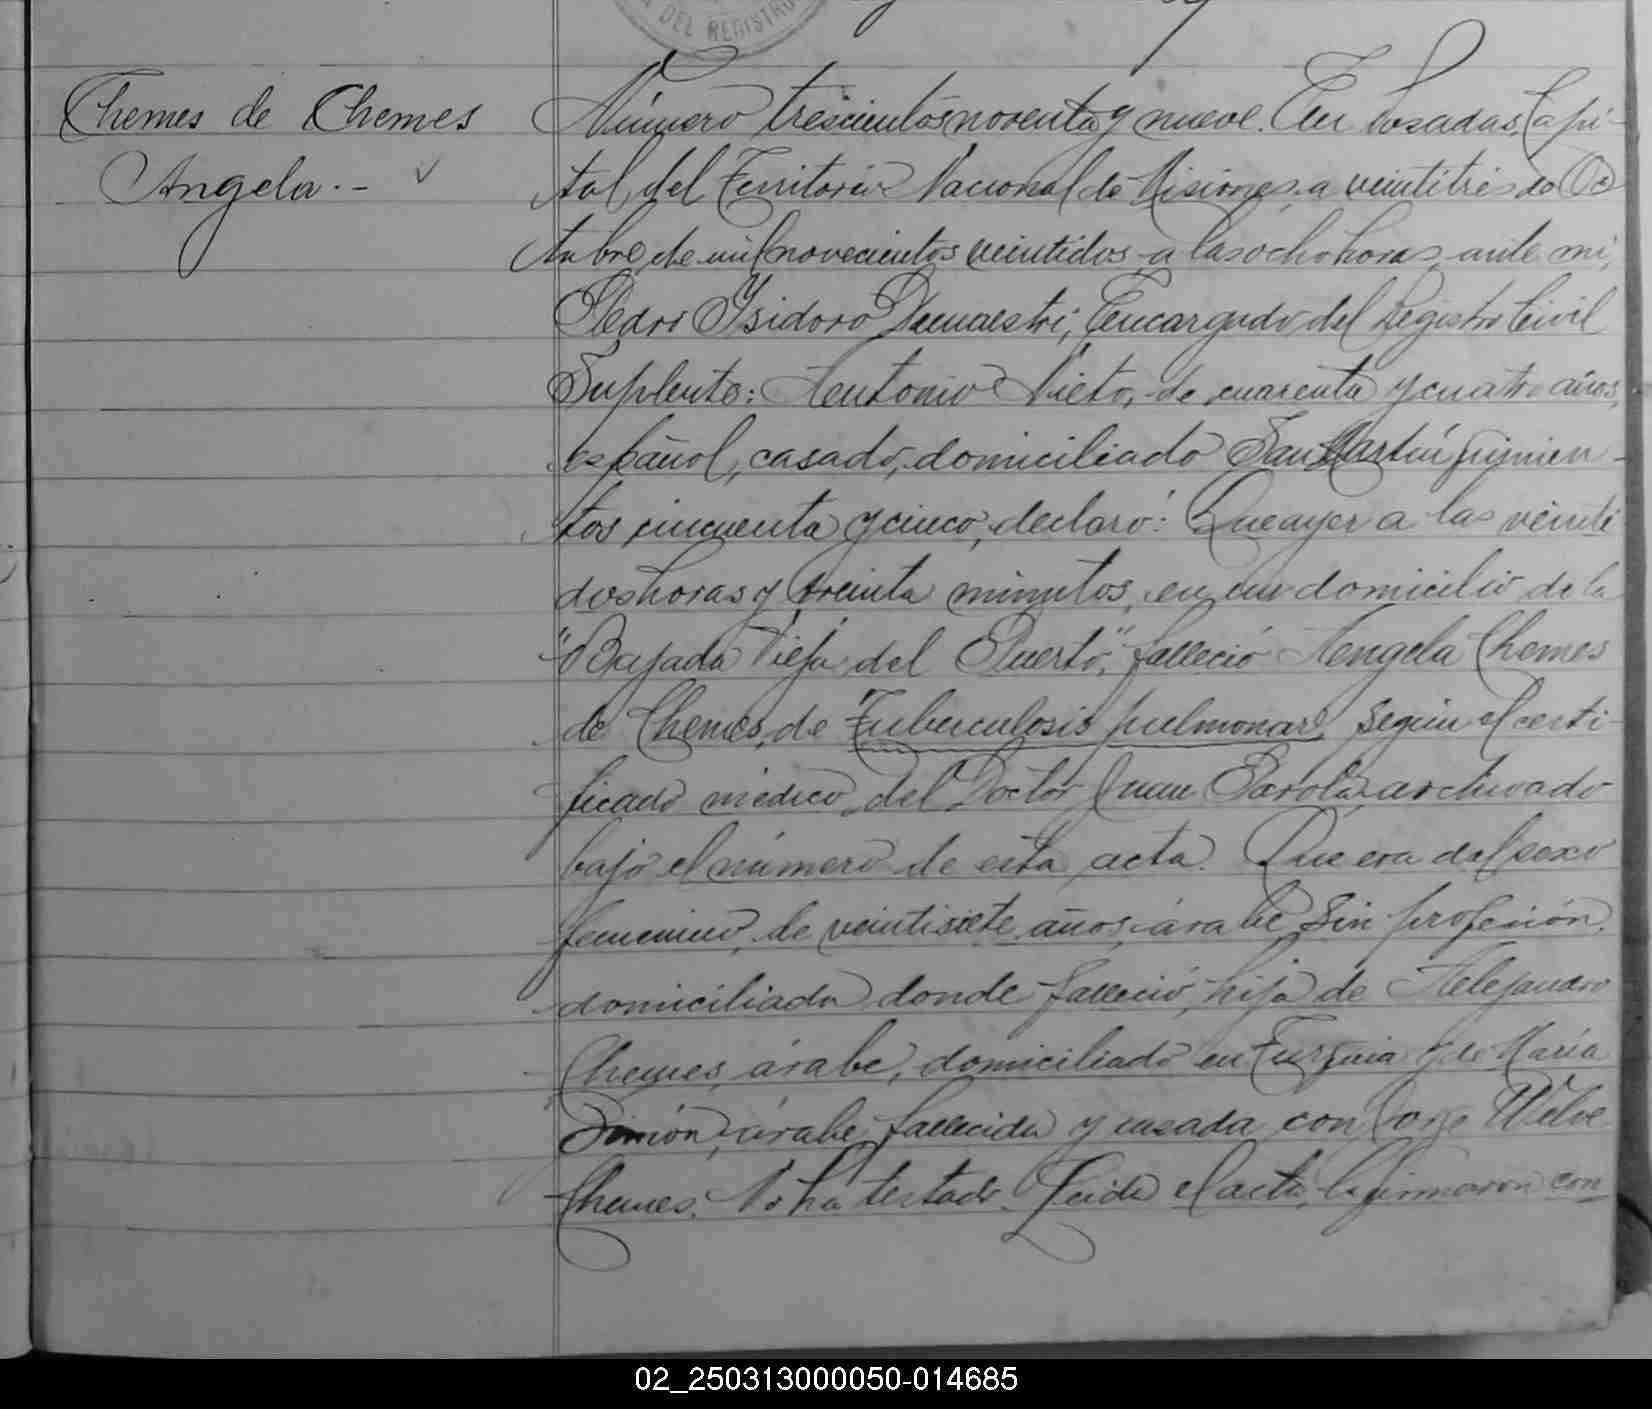 DEL REGISTRO
Chemes de Chemes
Angela.-
Número trescientos noventa y nueve. En Posadas, Capi-
tal del Territorio Nacional de Misiones, a veintitrés de Oc
tubre de mil novecientos veintidos a las ocho horas, ante mi,
Pedro Ysidoro Demaestri, Encargado del Registro Civil
Suplente: Antonio Nieto, de cuarenta y cuatro años,
español, casado, domiciliado San Martín quinien-
tos cincuenta y cinco, declaró: Que ayer a las veinti
dos horas y treinta minutos, en su domicilio de la
"Bajada Vieja del Puerto", falleció Angela Chemes
de Chemes, de Tuberculosis pulmonar, según el certi-
ficado médico del Doctor Juan Parola, archivado
bajo el número de esta acta. Que era del sexo
femenino, de veintisiete años, árabe, sin profesión,
domiciliada donde falleció, hija de Alejandro
Chemes, árabe, domiciliado en Turquia y de María
Simón, árabe, fallecida y casada con Jorge
Chemes. No ha testado. Leida el acta, la firmaron con
02_250313000050-014685